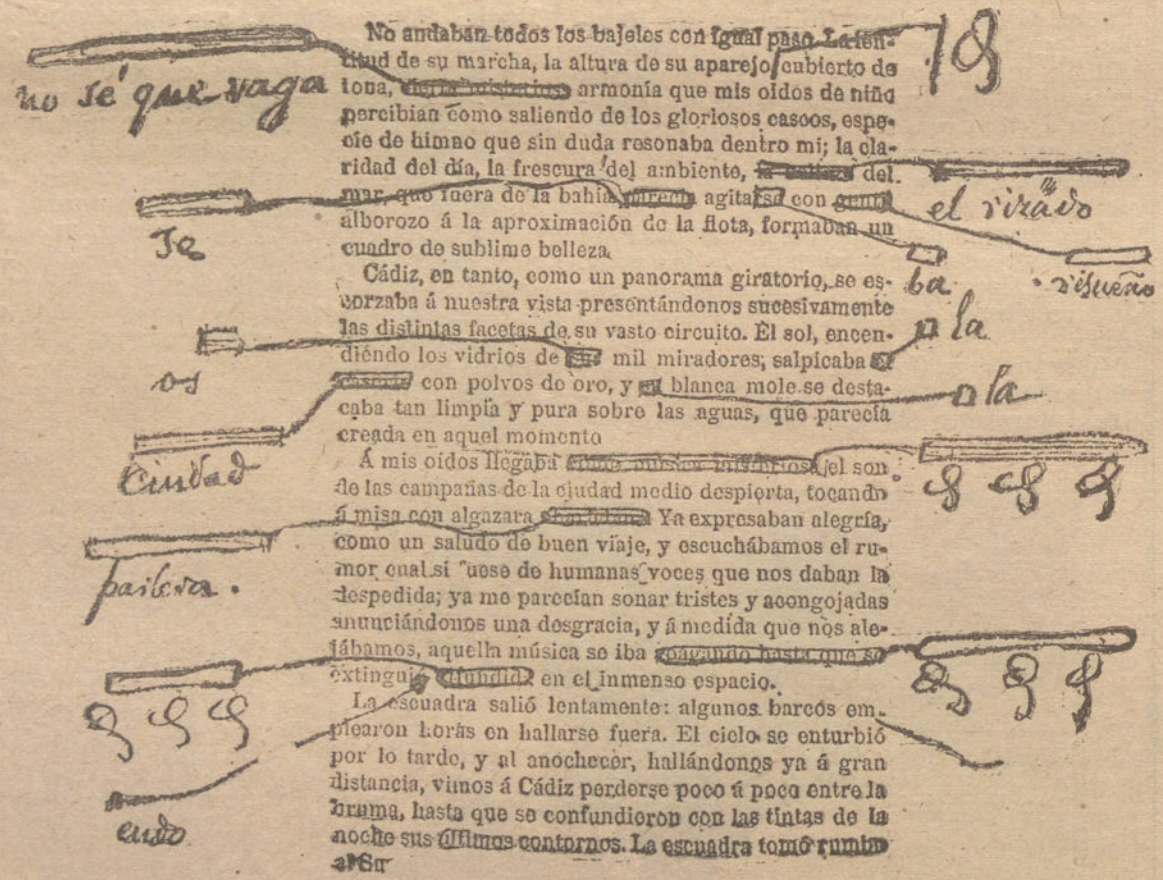 No andaban todos los bajeles con igual paso. La len-
titud de su marcha, la altura de su aparejo cubierto de
no sé que vaga
lona, armonía que mis oidos de niño
percibian como saliendo de los gloriosos cascos, espe-
cie de himno que sin duda resonaba dentro mi; la cla-
ridad del día, la frescura del ambiente, del
mar, que fuera de la bahía parecia agitarse con gentil
el rizado
alborozo á la aproximación de la flota, formaban un
Je
cuadro de sublime belleza.
ba
risueño
Cádiz, en tanto, como un panorama giratorio, se es-
corzaba á nuestra vista presentándonos sucesivamente
las distintas facetas de su vasto circuito. El sol, encen-
la
diéndo los vidrios de mil miradores, salpicaba
os
con polvos de oro, y su blanca mole se desta-
la
caba tan limpia y pura sobre las aguas, que parecía
creada en aquel momento
Ciudad
Á mis oidos llegaba como música misteriosa el son
de las campañas de la ciudad medio despierta, tocando
á misa con algazara Ya expresaban alegría,
como un saludo de buen viaje, y escuchábamos el ru-
mor cual si uese de humanas voces que nos daban la
despedida; ya me parecían sonar tristes y acongojadas
anunciándonos una desgracia, y á medida que nos ale-
jábamos, aquella música se iba apagando hasta que se
extinguió difundida en el inmenso espacio.
La escuadra salió lentamente: algunos barcos em-
plearon horas en hallarse fuera. El cielo se enturbió
por lo tarde, y al anochecer, hallándonos ya á gran
distancia, vimos á Cádiz perderse poco á poco entre la
bruma, hasta que se confundieron con las tintas de la
endo
noche sus últimos contornos. La escuadra tomó rumbo
al Su